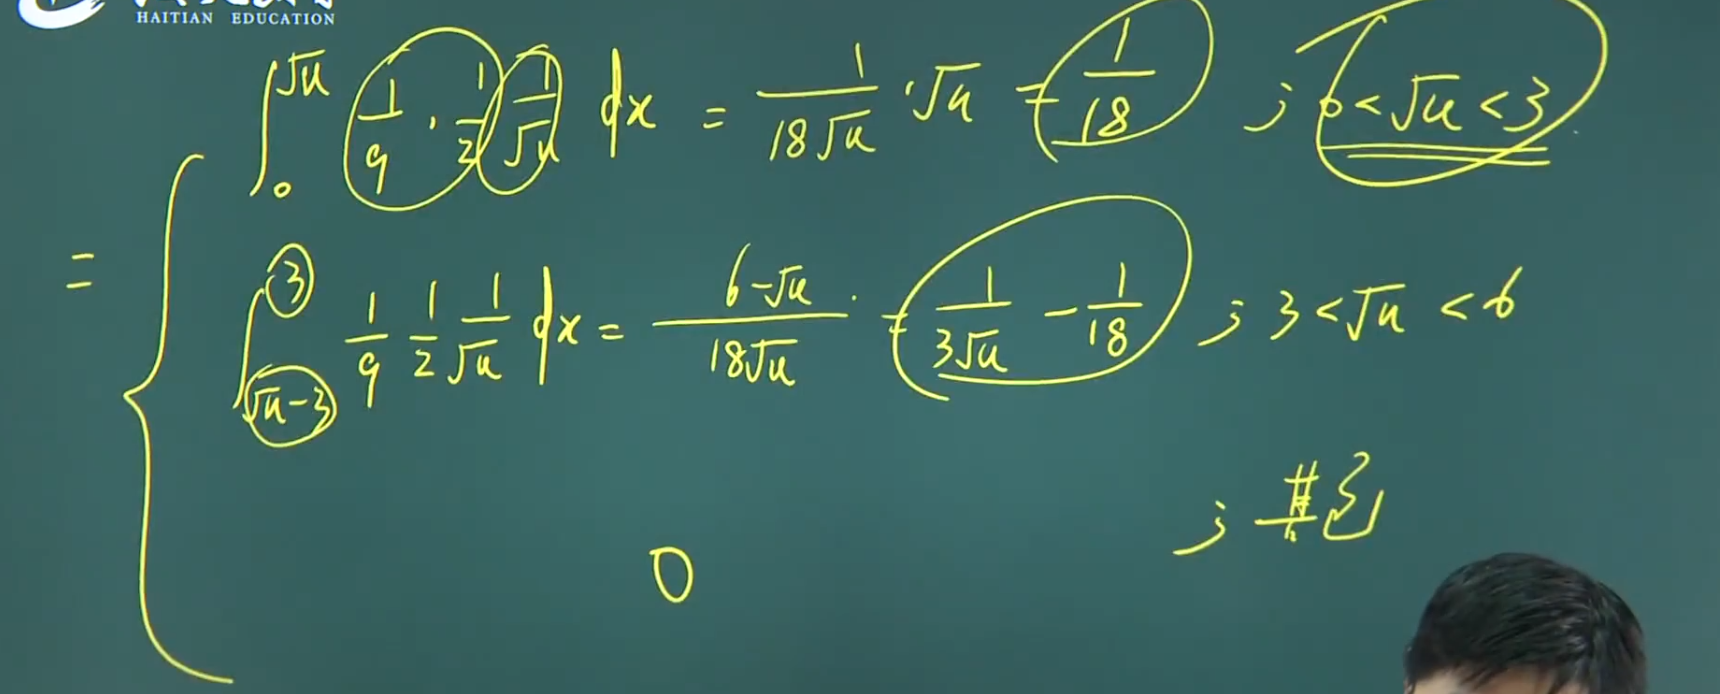 HAITIAN EDUCATION
∫₀^√u 1/9 · 1/2 1/√u dx = 1/(18√u) · √u = 1/18 ; 0 < √u < 3
= {
∫_(√u-3)^3 1/9 1/2 1/√u dx = (6-√u)/(18√u) = 1/(3√u) - 1/18 ; 3 < √u < 6
0 ; 其它